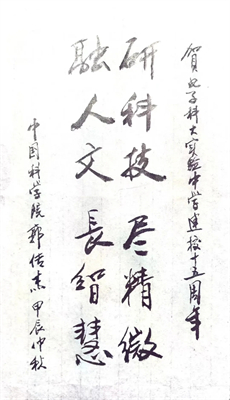 賀電子科大實驗中学建校十五周年
研科技 尽精微
融人文 長智慧
中国科学院 郑传杰 甲辰仲秋